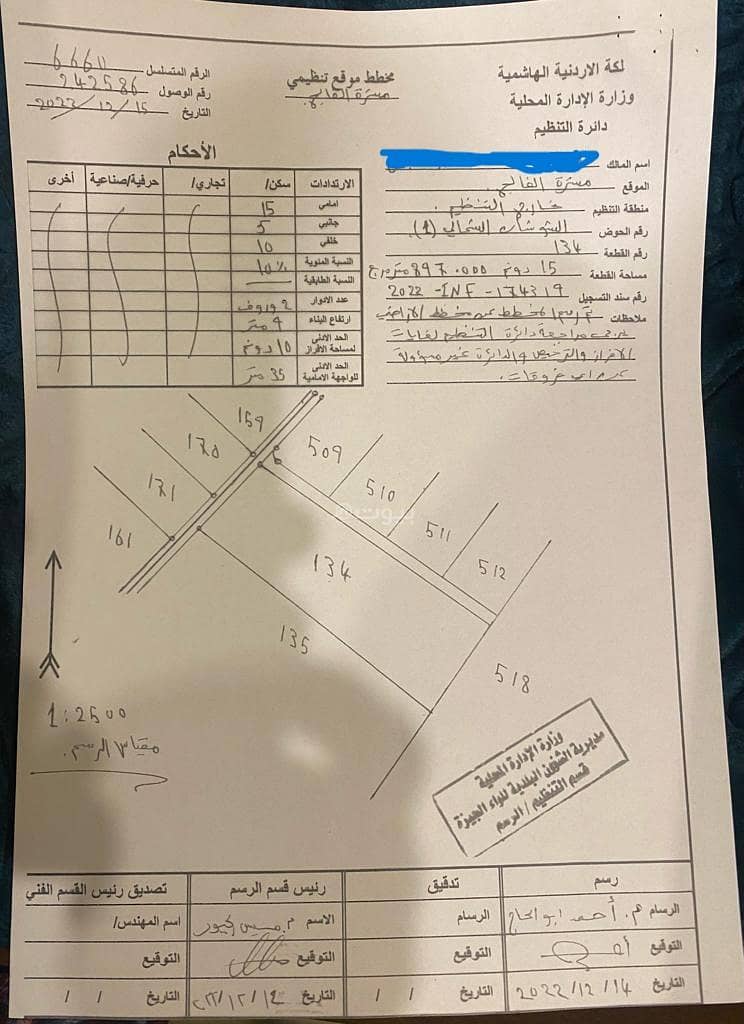 لكة الاردنية الهاشمية
وزارة الإدارة المحلية
دائرة التنظيم
مخطط موقع تنظيمي
مسترة الفالج
الرقم المتسلسل 66611
رقم الوصول 242586
التاريخ 2022/12/15
اسم المالك
الموقع مسترة الفالج
منطقة التنظيم خارج التنظيم
رقم الحوض الشمالي (1)
رقم القطعة 134
مساحة القطعة 15 دونم 897.000 متر مربع
رقم سند التسجيل 2022-INF-174319
ملاحظات تم رسم المخطط عن مخطط الأراضي
يرجى مراجعة دائرة التنظيم لغايات
الافراز والترخيص والدائرة غير مسؤولة
عن اي فروقات.
الأحكام
الارتدادات سكن/ تجاري/ حرفية/صناعية أخرى
امامي 15
جانبي 5
خلفي 10
النسبة المئوية 10%
النسبة الطابقية
عدد الادوار 2 وروف
ارتفاع البناء 9 متر
الحد الادنى لمساحة الأفراز 10 دونم
الحد الادنى للواجهة الامامية 35 متر
159
170
171
161
509
510
511
512
134
135
518
بيوت
1:2500
مقياس الرسم.
وزارة الإدارة المحلية
مديرية الشؤون البلدية للواء الجيزة
قسم التنظيم / الرسم
رسم تدقيق رئيس قسم الرسم تصديق رئيس القسم الفني
الرسام م. أحمد ابو الحاج الرسام الاسم م. اسم المهندس/
التوقيع التوقيع التوقيع التوقيع
التاريخ 2022/12/14 التاريخ / / التاريخ ٢٢/١٢/١٤ التاريخ / /